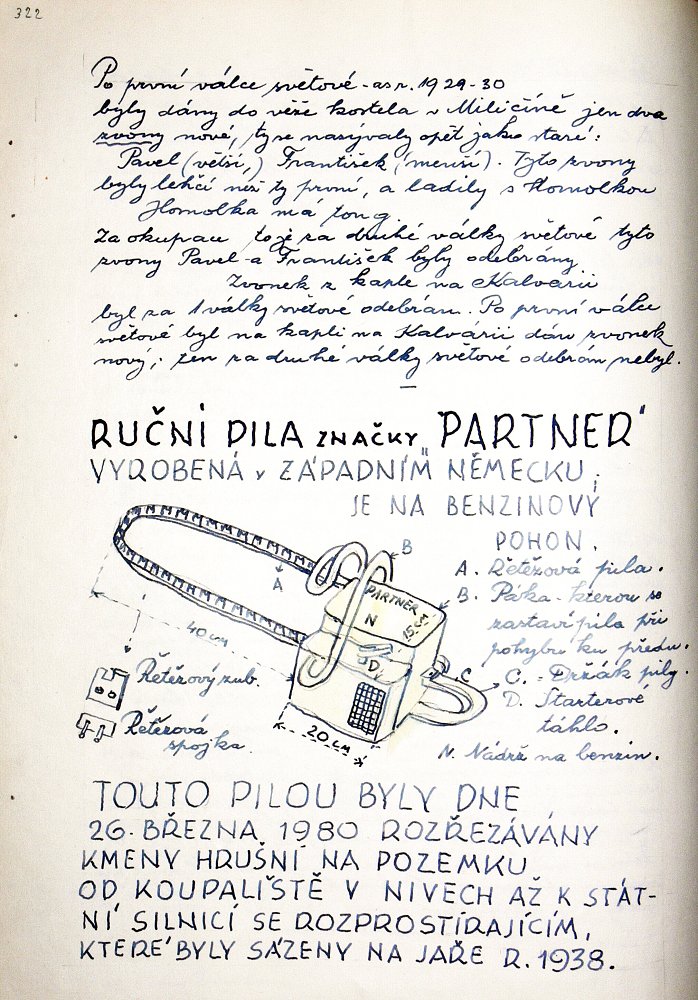 322
Po první válce světové - as r. 1929-30
byly dány do věže kostela v Miličíně jen dva
zvony nové, ty se nazývaly opět jako staré:
Pavel (větší,) František (menší). Tyto zvony
byly lehčí než ty první, a ladily s Homolkou
Homolka má ton g.
Za okupace to je za druhé války světové tyto
zvony Pavel a František byly odebrány.
Zvonek z kaple na Kalvarii
byl za 1 války světové odebrán. Po první válce
světové byl na kapli na Kalvárii dán zvonek
nový; ten za druhé války světové odebrán nebyl.
RUČNÍ PILA ZNAČKY „PARTNER"
VYROBENÁ V ZÁPADNÍM NĚMECKU;
JE NA BENZINOVÝ
POHON.
B
A
PARTNER
N
15 cm
D
C
40 cm
20 CM
A. Řetězová pila.
B. Páka - kterou se
zastaví pila při
pohybu ku předu.
C. - Držák pily.
D. Starterové
táhlo.
N. Nádrž na benzin.
Řetězový zub.
Řetězová
spojka
TOUTO PILOU BYLY DNE
26. BŘEZNA 1980 ROZŘEZÁVÁNY
KMENY HRUŠNÍ NA POZEMKU
OD KOUPALIŠTĚ V NIVECH AŽ K STÁT-
NÍ SILNICÍ SE ROZPROSTÍRAJÍCÍM,
KTERÉ BYLY SÁZENY NA JAŘE R. 1938.